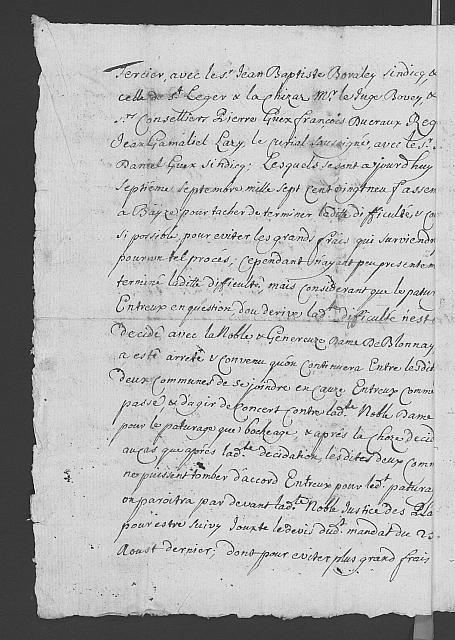 Tercier, avec le Sr. Jean Baptiste Boraley Sindicq, &
celle de St. Leger & la Chiza Mr. le Juge Bovey, &
Srs. Conselliers Pierre Guex François Ducraux Reg
Jean Gamaliel Lary, le Curtial Soussigné, avec le Sr.
Daniel Guex Sindicq; Lesquels se sont ajourd'huy
Septieme Septembre mille Sept Cent vingt neu f assem
a pour tacher de terminer ladite difficulté, & Con
Si possible, pour eviter les grands frais qui surviendr
pour un tel proces; Cependant n'ayant peu presentem
terminé ladite difficulté, mais considerant que le patur
Entreux en question, d'ou derive lade. difficulté n'est
decidé avec la Noble & Genereuze Dame De Blonnay
a esté arreté & convenu qu'on Continuera Entre les dit
deux Communes de se joindre en Cauze Entreux Comme
passé, & d'agir de Concert contre ladte. Noble Dame
pour le paturage que bocheage, & après la Choze decid
au cas que après ladte. decidation, les dites deux Comm
ne puissent tomber d'accord Entreux pour ledt. patura
on paroitra par devant ladte. Noble Justice des
pour estre suivy Jouxte le devis dudt. mandat du 2
Aoust dernier; dont pour eviter plus grand frais